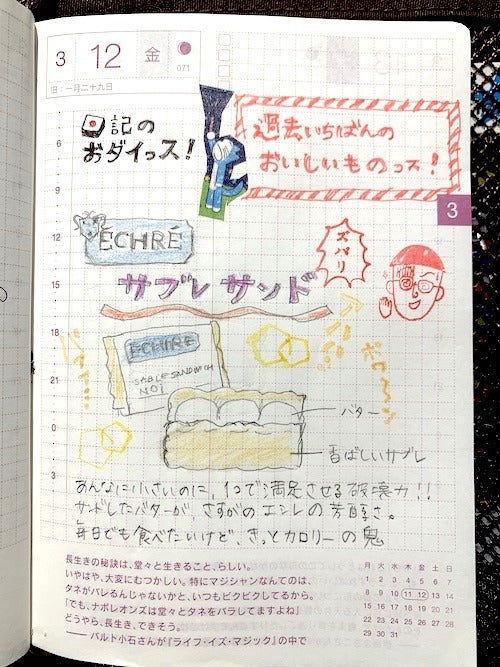 3 12 金
071
旧：一月二十九日
日記の
おダイっス！
過去いちばんの
おいしいものっス！
3
6
9
12
15
18
21
0
3
ÉCHRÉ
ズバリ
サブレサンド
ÉCHIRÉ
SABLE SANDWICH
NO1
バター
香ばしいサブレ
あんなに小さいのに、1つで満足させる破壊力！！
サンドしたバターが、さすがのエシレの芳醇さ。
毎日でも食べたいけど、きっとカロリーの鬼
長生きの秘訣は、堂々と生きること、らしい。
いやはや、大変にむつかしい。特にマジシャンなんてのは、
タネがバレるんじゃないかと、いつもビクビクしてるから。
「でも、ナポレオンズは堂々とタネをバラしてますよね」
どうやら、長生き、できそう。
── パルト小石さんが『ライフ・イズ・マジック』の中で
月 火 水 木 金 土 日
1 2 3 4 5 6 7
8 9 10 11 12 13 14
15 16 17 18 19 20 21
22 23 24 25 26 27 28
29 30 31